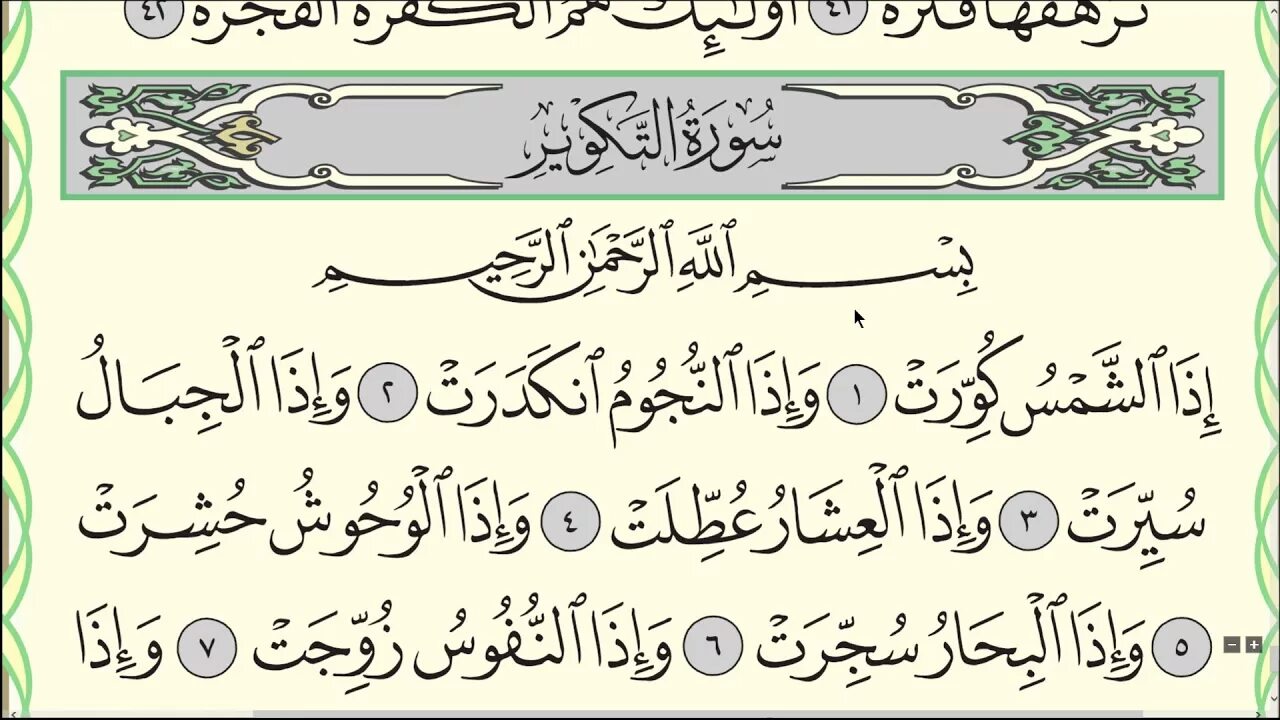 تَرْهَقُهَا قَتَرَةٌ ٤١ أُو۟لَـٰٓئِكَ هُمُ ٱلْكَفَرَةُ ٱلْفَجَرَةُ ٤٢
سُورَةُ التَّكْوِيرِ
بِسْمِ ٱللَّهِ ٱلرَّحْمَـٰنِ ٱلرَّحِيمِ
إِذَا ٱلشَّمْسُ كُوِّرَتْ ١ وَإِذَا ٱلنُّجُومُ ٱنكَدَرَتْ ٢ وَإِذَا ٱلْجِبَالُ
سُيِّرَتْ ٣ وَإِذَا ٱلْعِشَارُ عُطِّلَتْ ٤ وَإِذَا ٱلْوُحُوشُ حُشِرَتْ
٥ وَإِذَا ٱلْبِحَارُ سُجِّرَتْ ٦ وَإِذَا ٱلنُّفُوسُ زُوِّجَتْ ٧ وَإِذَا